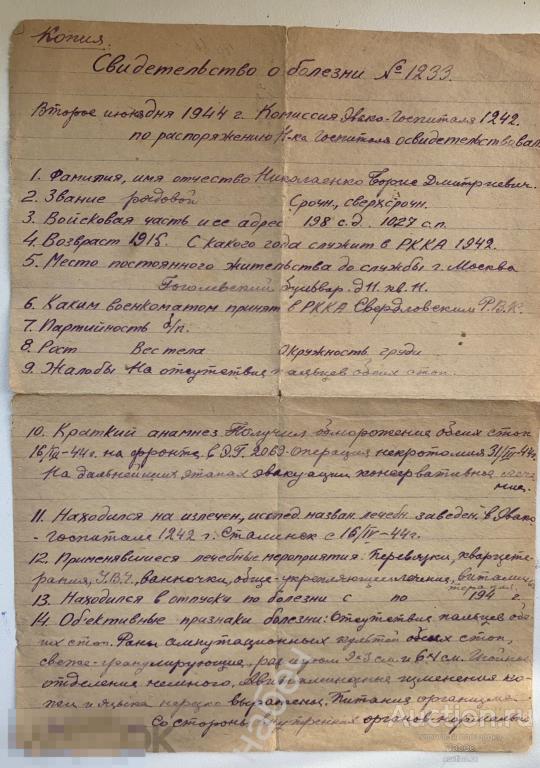 Копия.
Свидетельство о болезни № 1233.
Второе июня дня 1944 г. Комиссия Эвако-Госпиталя 1242.
по распоряжению Н-ка Госпиталя освидетельствовал
1. Фамилия, имя отчество Николаенко Борис Дмитриевич.
2. Звание рядовой Срочн, сверхсрочн.
3. Войсковая часть и ее адрес 198 с.д. 1027 с.п.
4. Возраст 1915. С какого года служит в РККА 1942.
5. Место постоянного жительства до службы г. Москва
Гоголевский бульвар. д 11. кв. 11.
6. Каким военкоматом принят в РККА Свердловским Р.В.К.
7. Партийность б/п.
8. Рост Вес тела Окружность груди
9. Жалобы На отсутствие пальцев обеих стоп.
10. Краткий анамнез Получил обморожение обеих стоп
на фронте. в Э.Г. 2069 операция некротомия
На дальнейших этапах эвакуации консервативное лече
ние.
11. Находился на излечен, исслед назван лечебн. заведен в Эвако
-госпитале 1242 г. Сталинск с 16/IV-44г.
12. Применявшиеся лечебные мероприятия: Перевязки, кварцете-
рапия, ванночки, обще-укрепляющее лечение, витамин
терапия.
13. Находился в отпуску по болезни с по 194 г.
14. Обективные признаки болезни: Отсутствие пальцев обе-
их стоп. Раны ампутационных культей обеих стоп,
свеже-гранулирующие, размером 2х3 см. и 6х4 см.
отделение немного. изменения ко-
жи и языка нерезко выражены. Питание организма
Со стороны внутренних органов нормальн
Auction.ru